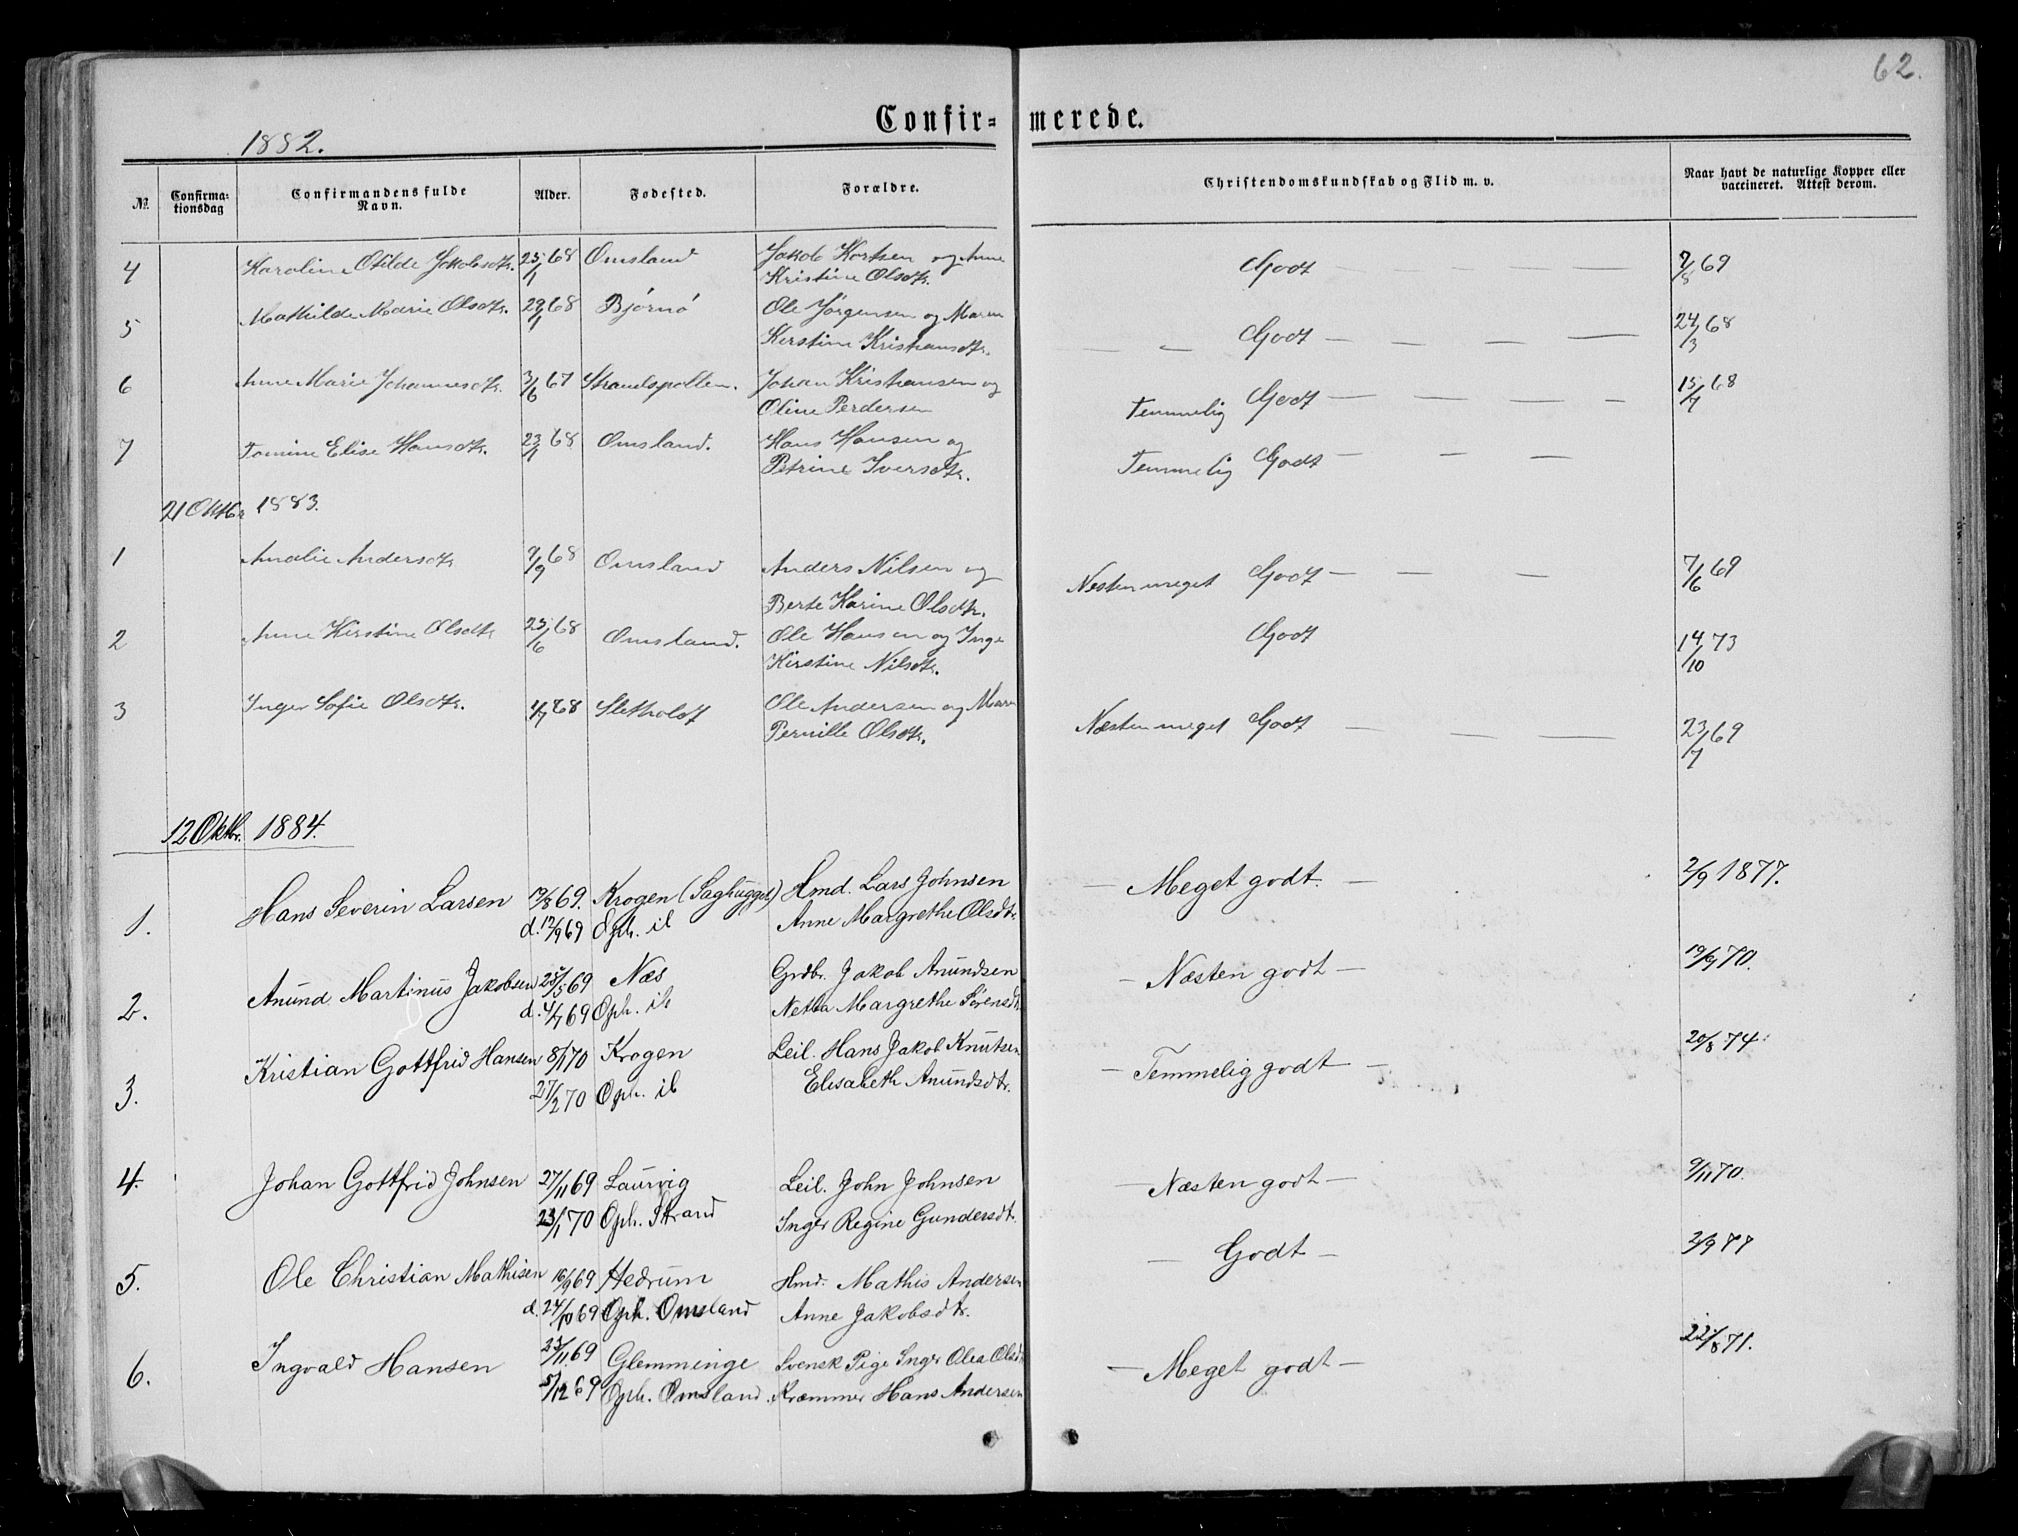 62.
Confir- merede.
1882.
№. Confirma-tionsdag Confirmandens fulde Navn. Alder. Fødested. Forældre. Christendomskundskab og Flid m. v. Naar havt de naturlige Kopper eller vaccineret. Attest derom.
4 Karoline Otilde Jakobsdtr. 25/1 68 Omsland Jakob Kortsen og Anne Godt 7/8 69
Kristine Olsdtr.
5 Mathilde Marie Olsdtr. 29/1 68 Bjørnø Ole Jørgensen og Maren Godt 24/3 68
Kerstine Kristiansdtr.
6 Anne Marie Johannesdtr. 3/6 67 Strandspolten. Johan Kristiansen og Temmelig Godt 15/7 68
Oline Perdersen
7 Tomine Elise Hansdtr. 23/1 68 Omsland. Hans Hansen og Temmelig Godt
Petrine Iversdtr.
21 Oktbr 1883.
1 Amalie Andersdtr 9/9 68 Omsland Anders Nilsen og Nesten meget Godt 7/6 69
Berte Karine Olsdtr.
2 Anne Kirstine Olsdtr 25/6 68 Omsland. Ole Hansen og Inge Godt 14/10 73
Kirstine Nilsdtr.
3 Inger Sofie Olsdtr. 4/7 68 Sletholdt Ole Andersen og Maren Næsten meget Godt 23/7 69
Pernille Olsdtr.
12 Oktbr. 1884.
1. Hans Severin Larsen 19/8 69. Krogen (Saghugget) Hmd. Lars Johnsen Meget godt. 2/9 1877.
d. 12/9 69 Oph. ib Anne Margrethe Olsdtr.
2. Anund Martinus Jakobsen 28/5 69 Næs Grdbr. Jakob Anundsen Næsten godt 19/9 70.
d. 4/7 69 Oph. ib Netta Margrethe Sørensdtr
3. Kristian Gottfrid Hansen 8/1 70 Krogen Leil. Hans Jakob Knutsen Temmelig godt 20/8 74.
27/2 70 Oph. ib Elisabeth Anundsdtr.
4. Johan Gottfrid Johnsen 27/11 69 Laurvig Leil. John Johnsen Næsten godt 9/11 70.
23/1 70 Oph. Strand Inger Regine Gundersdtr.
5. Ole Christian Mathisen 16/9 69 Hedrum Hmd. Mathis Andersen Godt 3/9 77
d. 24/10 69 Oph. Omsland Anne Jakobsdtr.
6. Ingvald Hansen 23/11 69 Glemminge Svensk Pige Inger Olea Olsdtr Meget godt 22/8 71.
5/12 69 Oph. Omsland. Kræmmer Hans Andersen